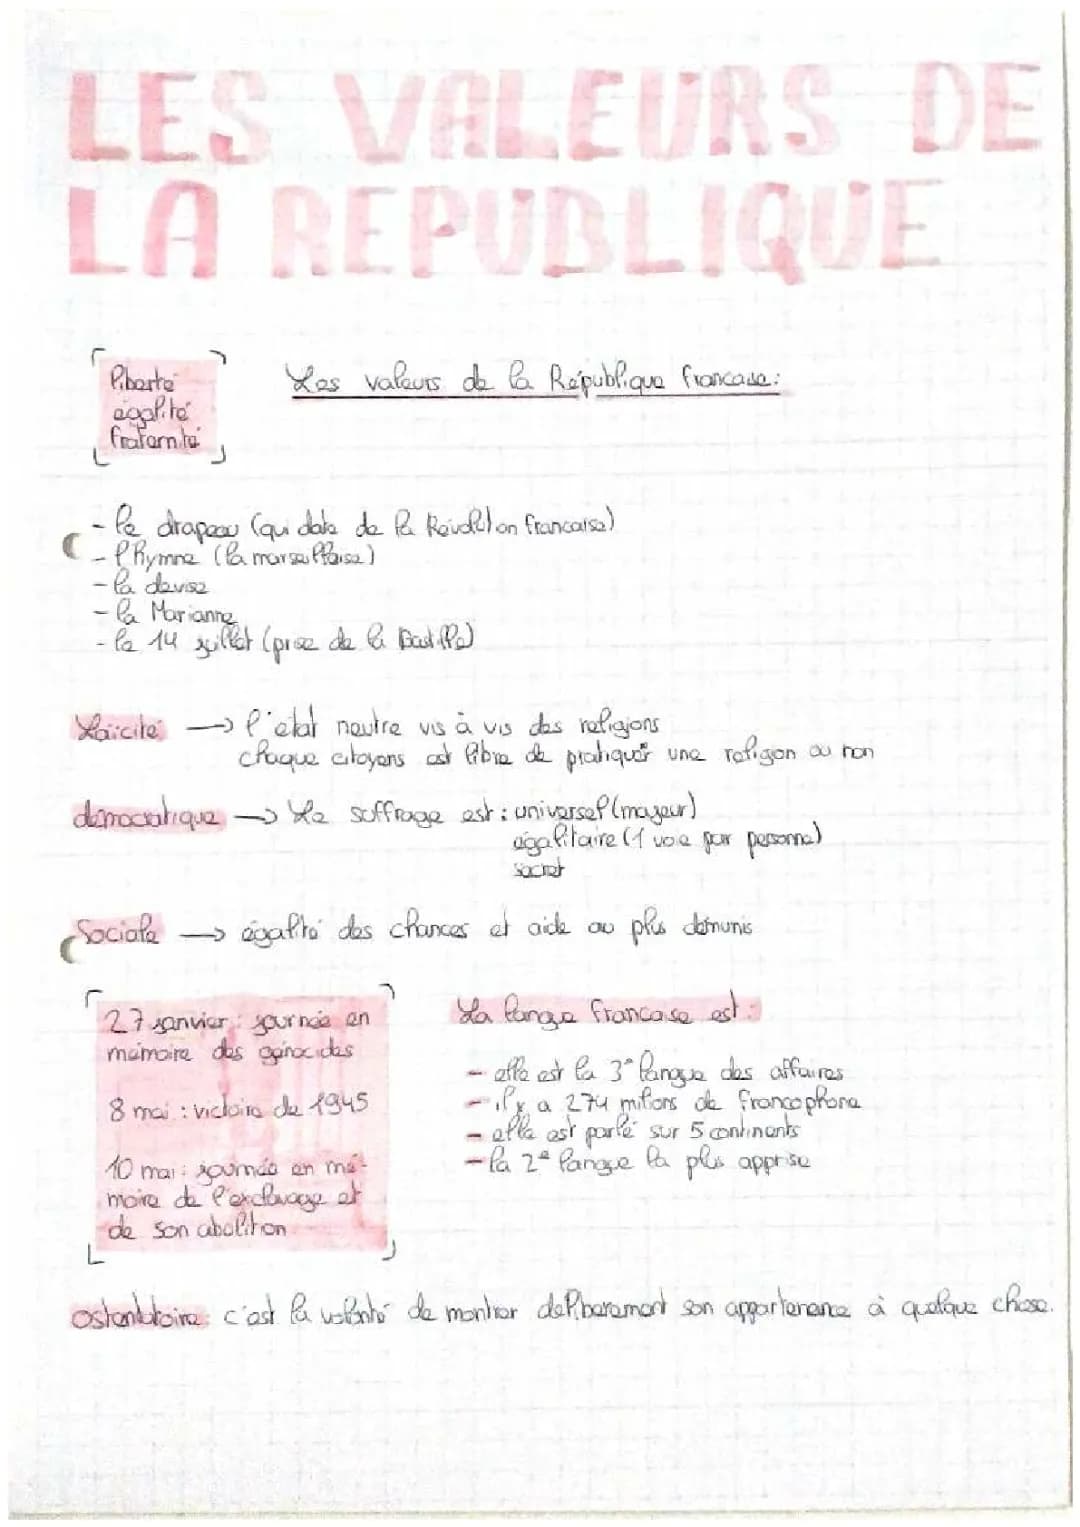 LES VALEURS DE
LA REPUBLIQUE
liberté
égalité
fraternité
Les valeurs de la République francaise:
- le drapeau (qui date de la Révolution francaise)
- l'hymne (la marseillaise)
- la devise
- la Marianne
- le 14 juillet (prise de la Bastille)
Laïcité → l'état neutre vis à vis des religions
chaque citoyens est libre de pratiquer une religion ou non
démocratique → Le suffrage est : universel (majeur)
égalitaire (1 voie par personne)
secret
Sociale → égalité des chances et aide au plus démunis
27 janvier : journée en
mémoire des génocides
8 mai : victoire de 1945
10 mai : journée en mé-
moire de l'esclavage et
de son abolition
La langue francaise est :
- elle est la 3e langue des affaires
- il y a 274 milions de francophone
- elle est parlé sur 5 continents
- la 2e langue la plus apprise
ostentatoire : c'est la volonté de montrer deliberement son appartenance à quelque chose.